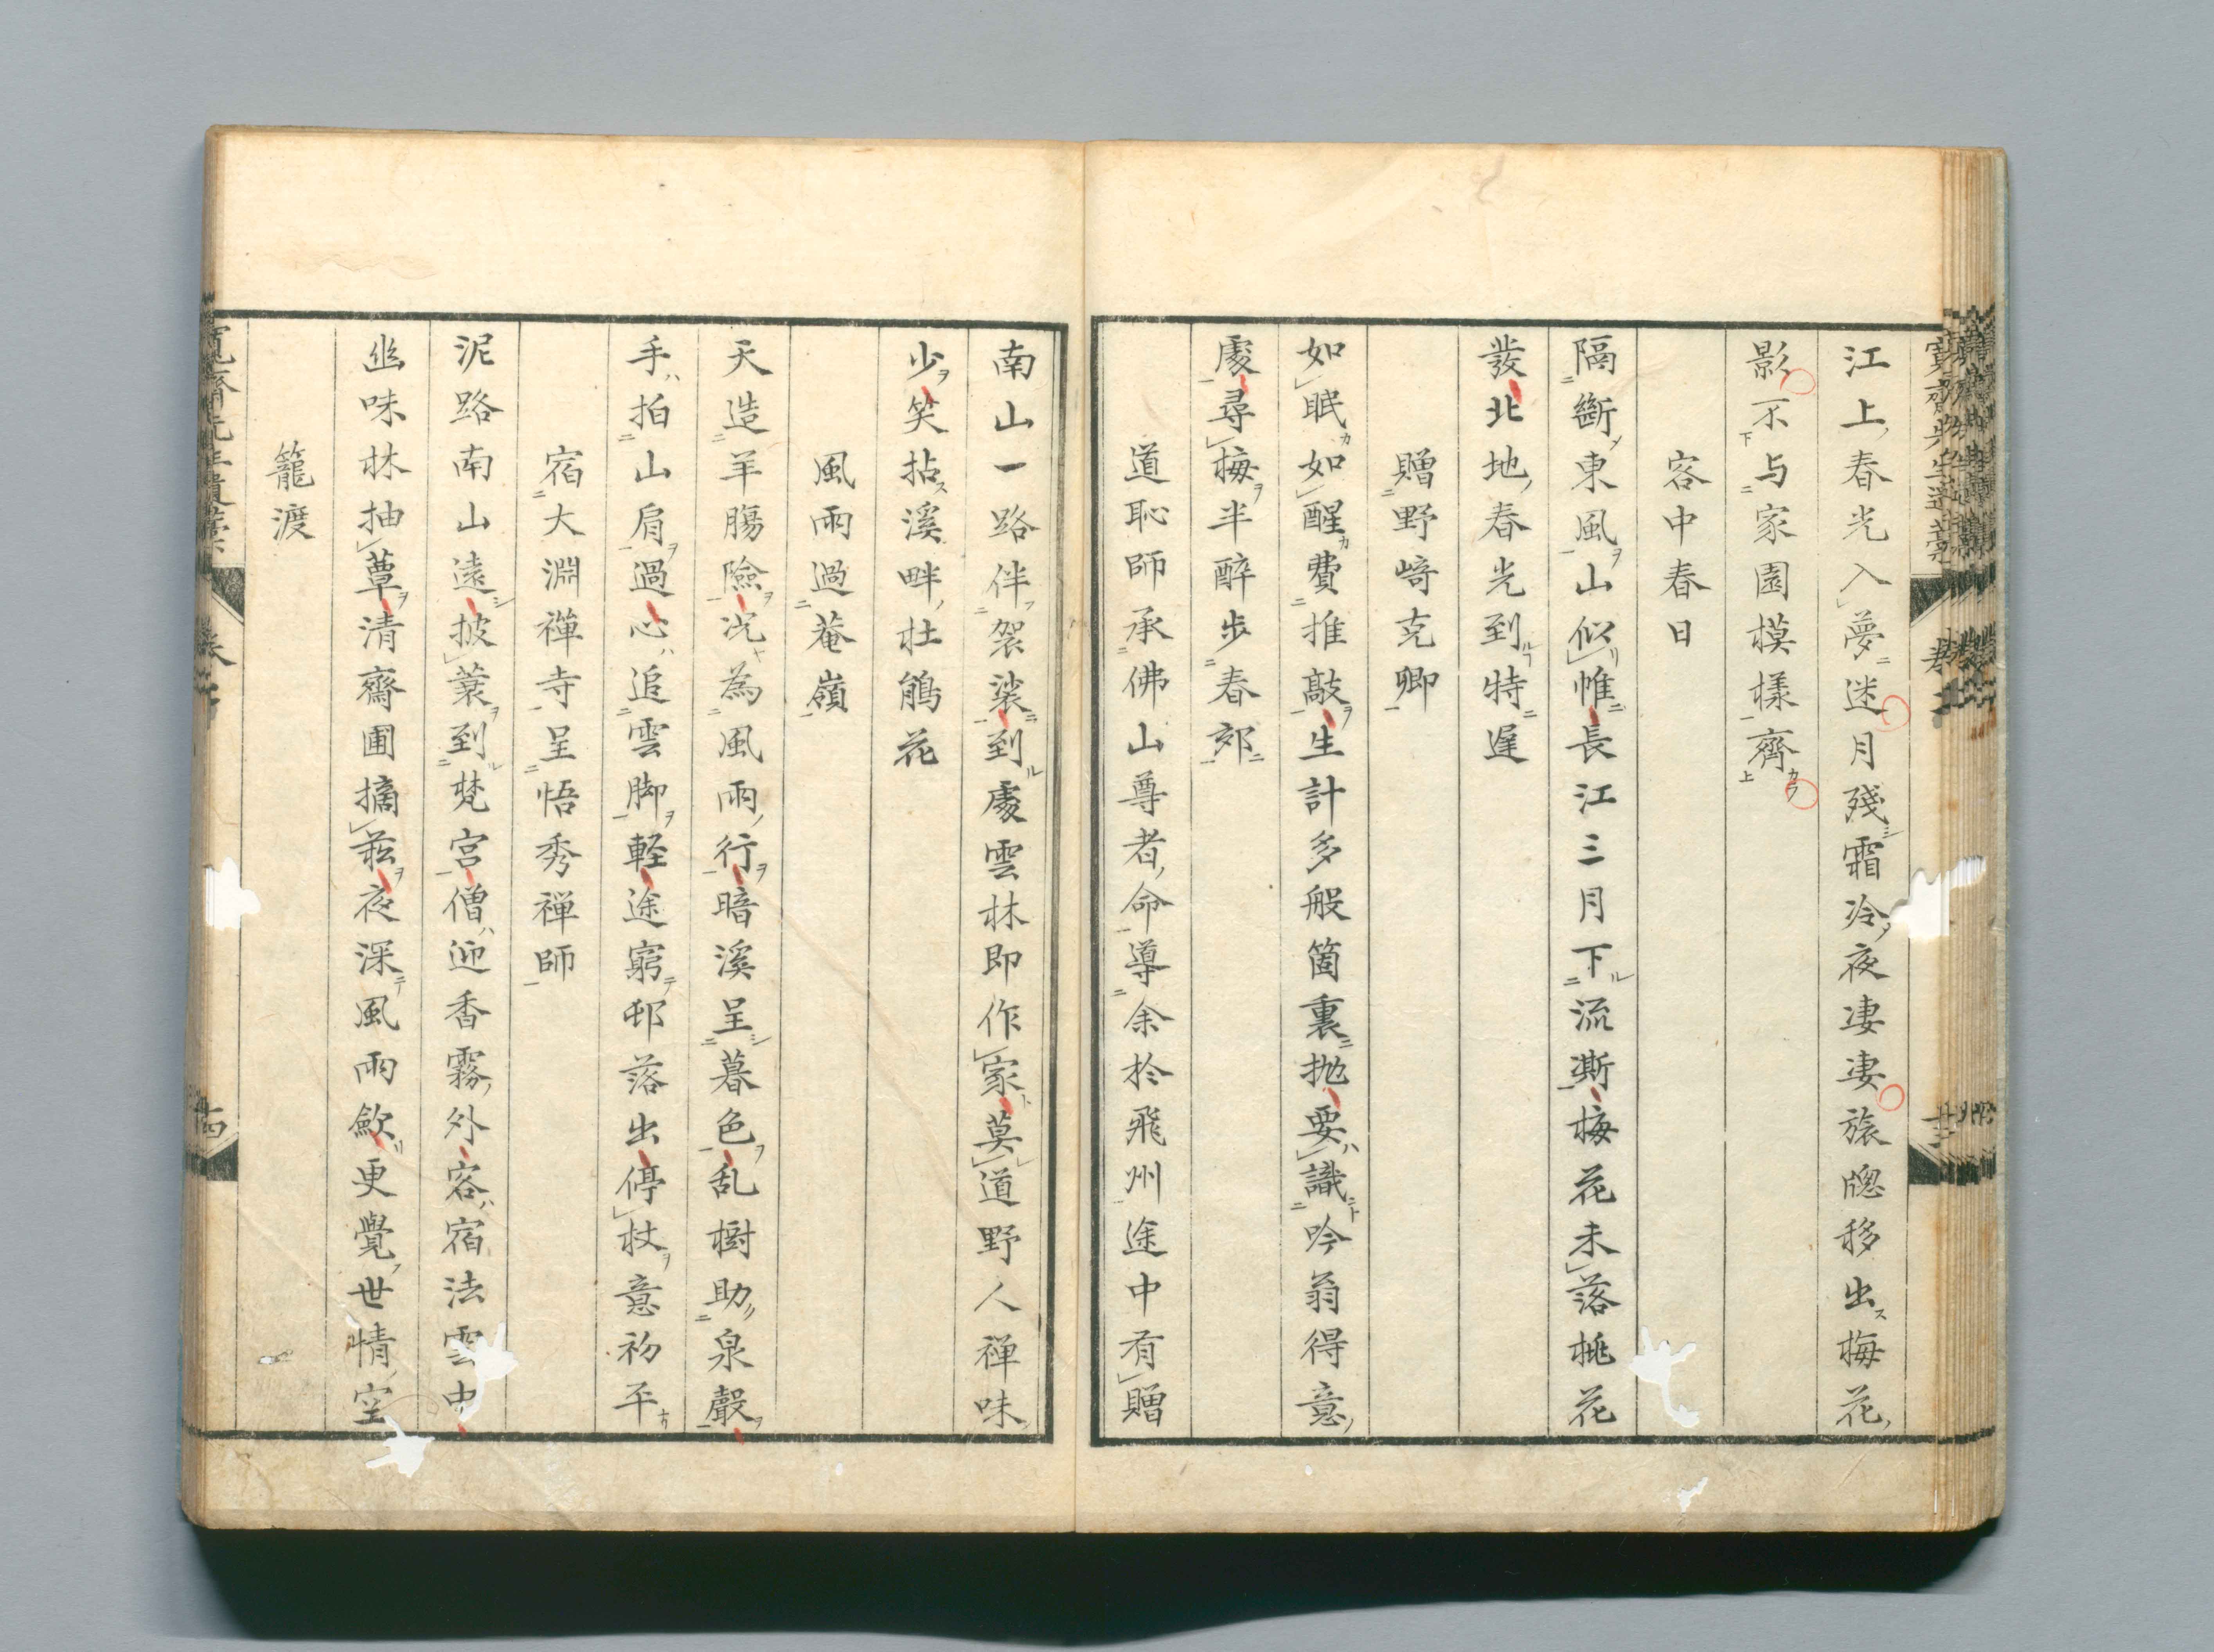 江上春光入夢迷月殘霜冷夜凄凄旅牕移出梅花
影不与家園模樣齊
客中春日
隔斷東風山似帷長江三月下流澌梅花未落桃花
發北地春光到特遅
贈野﨑克卿
如眠如醒費推敲生計多般箇裏抛要識吟翁得意
處尋梅半醉步春郊
道恥師承佛山尊者命導余於飛州途中有贈
南山一路伴袈裟到處雲林即作家莫道野人禅味
少笑拈溪畔杜鵑花
風雨過菴嶺
天造羊膓險况為風雨行暗溪呈暮色乱樹助泉聲
手拍山肩過心追雲脚軽途窮邨落出停杖意初平
宿大淵禪寺呈悟秀禅師
泥路南山遠披蓑到梵宮僧迎香霧外客宿法雲中
幽味林抽蕈清齋圃摘菘夜深風雨歛更覺世情空
籠渡